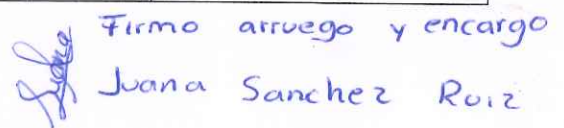 Firmo arruego y encargo
Juana Sanchez Ruiz